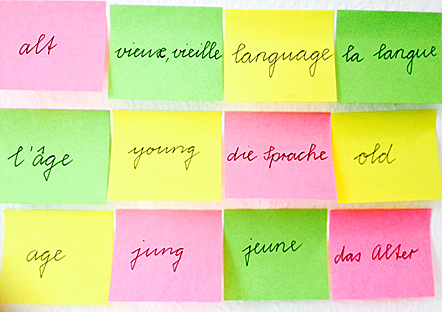 alt
vieux, vieille
language
la langue
l'âge
young
die Sprache
old
age
jung
jeune
das Alter